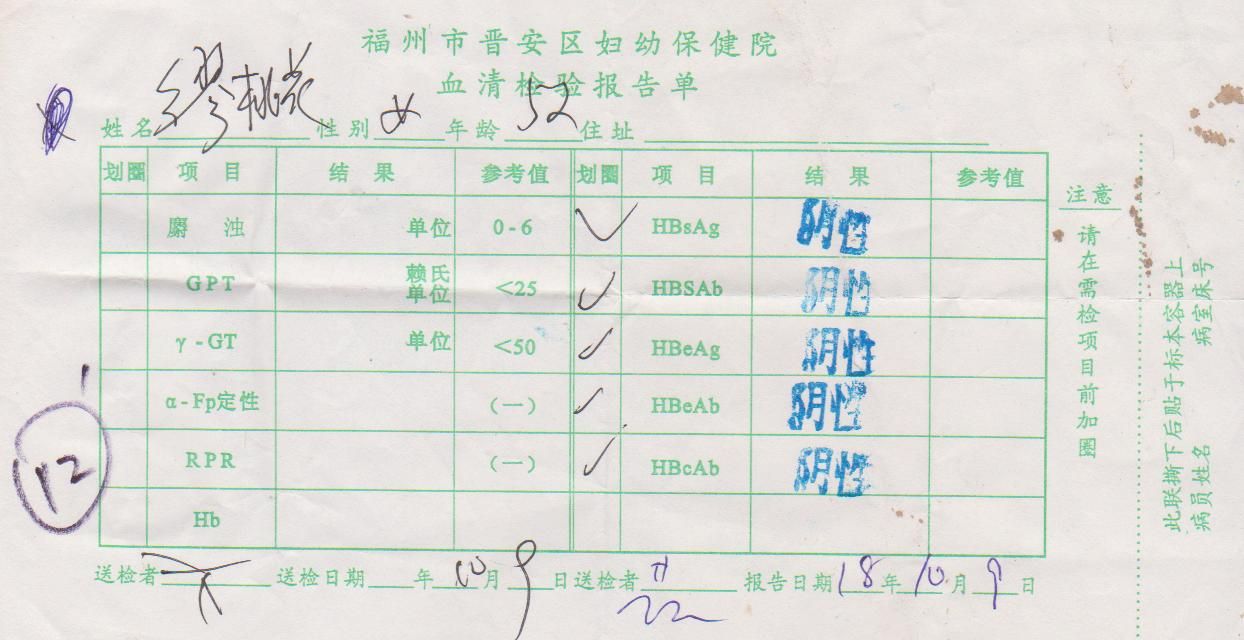 福州市晋安区妇幼保健院
血清检验报告单
姓名 缪桃 性别 女 年龄 52 住址
划圈 项目 结果 参考值 划圈 项目 结果 参考值
麝浊 单位 0-6 ✓ HBsAg 阴性
GPT 赖氏单位 <25 ✓ HBSAb 阴性
γ-GT 单位 <50 ✓ HBeAg 阴性
α-Fp定性 (一) ✓ HBeAb 阴性
RPR (一) ✓ HBcAb 阴性
Hb
12
送检者 送检日期 年 10 月 9 日 送检者 报告日期 18 年 10 月 9 日
注意
请在需检项目前加圈
此联撕下后贴于标本容器上
病员姓名 病室床号